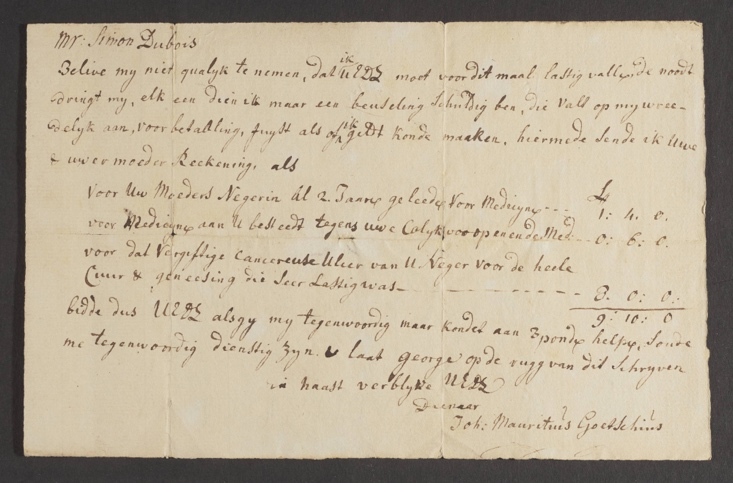 Mr. Simon Dubois
Belive my niet qualyk te nemen, dat ik UEDL moet voor dit maal lastig vallen, de noodt
dringt my, elk een dien ik maar een beuseling schuldig ben, die valt op my wree-
delyk aan, voor betalling, juyst als of ik geldt konde maaken, hiermede sende ik Uwe
& uwer moeder Reekening, als
£
voor Uw Moeders Negerin al 2. Jaaren geleden voor Medicyne --- 1: 4. 0.
voor Medicyne aan U besteedt tegens uwe Colyk, voor openende Med --- 0: 6: 0.
voor dat Vergiftige Cancereuse Ulcer van U. Neger voor de heele
Cuur & geneesing die seer Lastig was --- 8. 0: 0:
9: 10: 0
bidde dus UEDL alsgy my tegenwoordig maar kondet aan 3 ponden helpen, soude
me tegenwoordig dienstig zyn. laat George op de rugg van dit schryven
in haast verblyve UEDL
Dienaar
Joh: Mauritius Goetschius